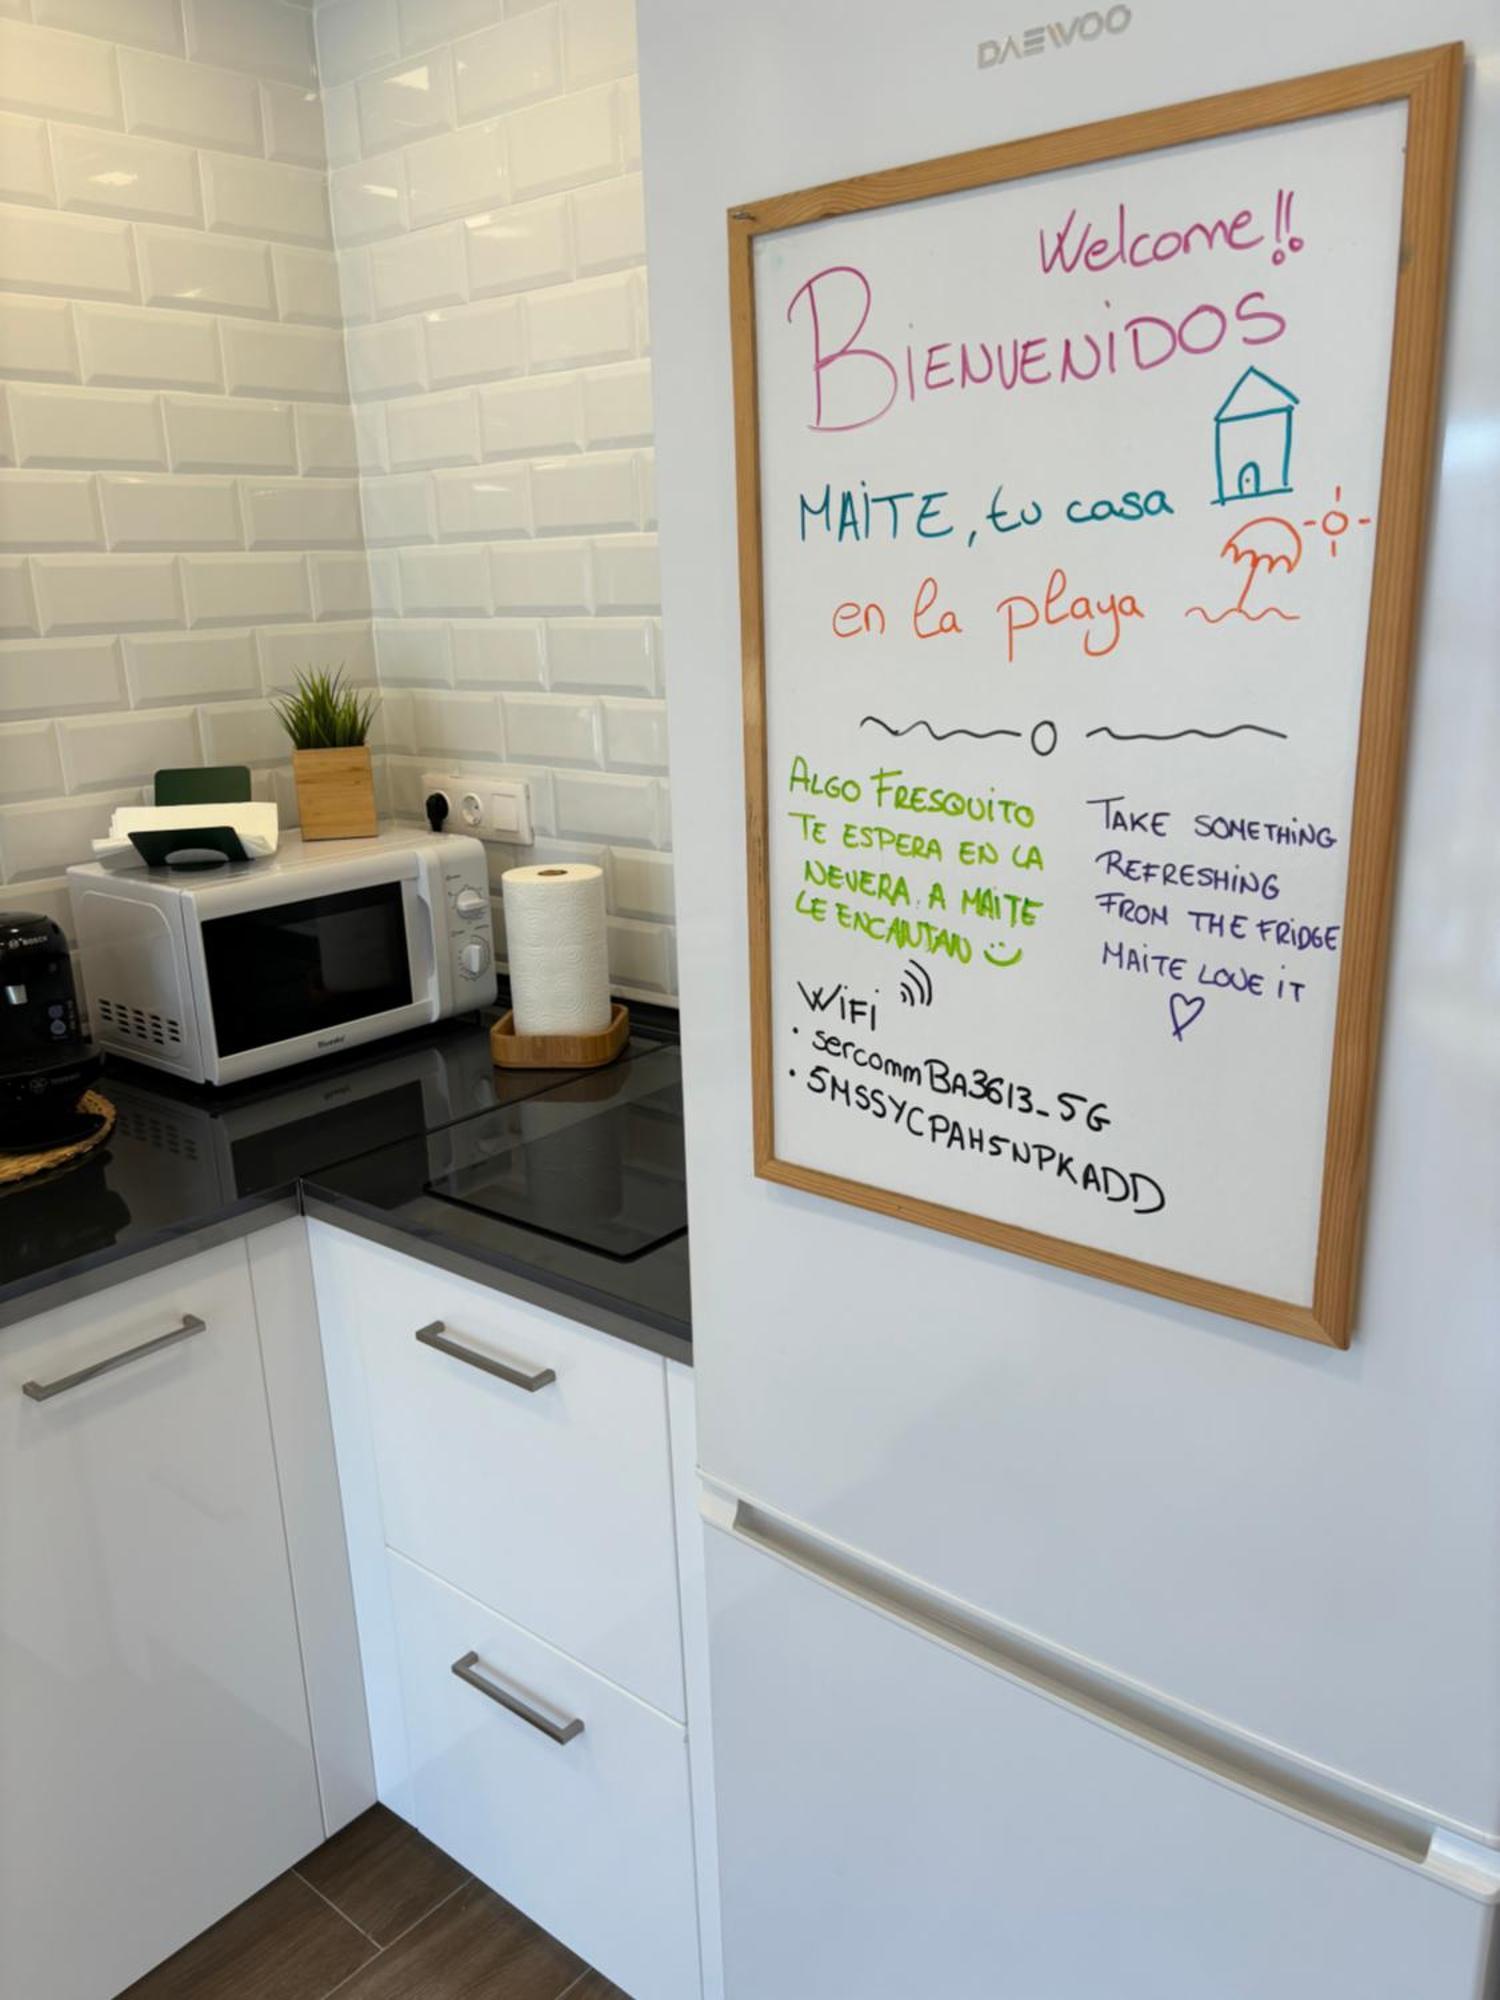 DAEWOO
Welcome!!
BIENVENIDOS
MAITE, tu casa
en la playa
ALGO FRESQUITO
TE ESPERA EN LA
NEVERA. A MAITE
LE ENCANTAN
TAKE SOMETHING
REFRESHING
FROM THE FRIDGE
MAITE LOVE IT
WiFi
· sercommBA3613_5G
· 5MSSYCPAH5NPKADD
BOSCH